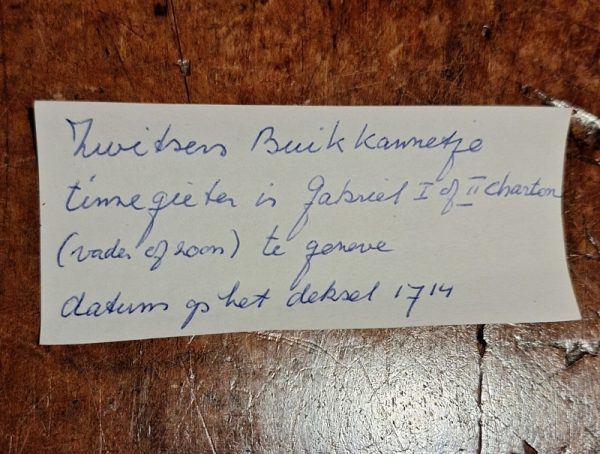 Zwitsers Buikkannetje
tinnegieter is Gabriel I of II Charton
(vader of zoon) te geneve
datum op het deksel 1714